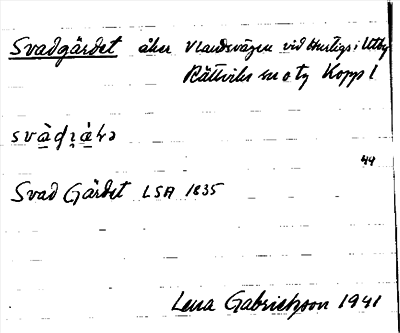 Svadgärdet åker V landsvägen vid Hertigs i Utby
Rättviks sn o tg Kopp l
44
Svad Gärdet LSA 1835
Lena Gabrielsson 1941